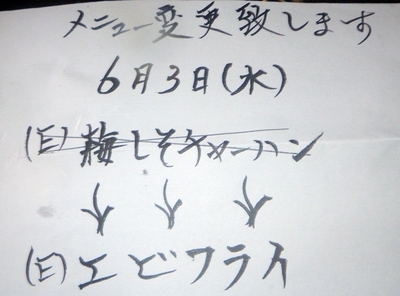 メニュー変更致します
6月3日(水)
(E) 梅しそチャーハン
↓ ↓ ↓
(E) エビフライ